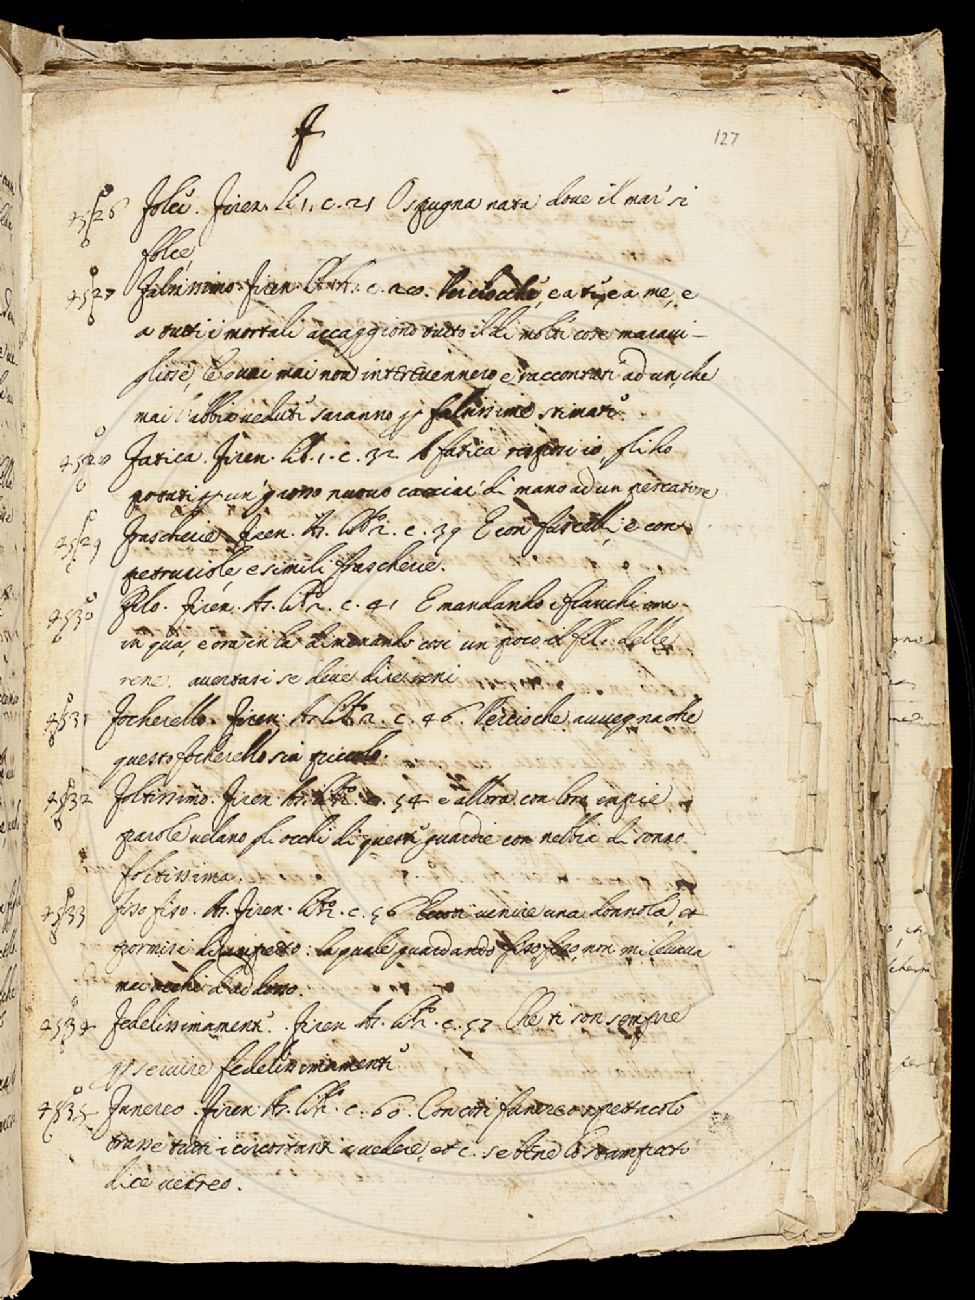 F
127
4526 Folce. Firen. lib. 1. c. 21 O spugna nata dove il mar si
folce,
4527 Falsissimo. Firen. lib. c. 20. Perciocche, e a te, e a me, e
a tutti i mortali accaggiono tutto il dì molte cose maravi-
gliose, le quai mai non intervennero, e raccontate ad un che
mai l'abbia vedute saranno per falsissime stimate.
4528 Fatica. Firen. lib. 1. c. 32 A fatica io gli ho
potuti per un giorno nuovo cacciar di mano ad un pescatore
4529 Frascherie. Firen. As. lib. 2. c. 39 E con fuscelli, e con
petruciole, e simili frascherie.
4530 Filo. Firen. As. lib. 2. c. 41 E mandando i fianchi ora
in qua, e ora in là dimenando così un poco il fil delle
rene. avertasi se deve dire reni
4531 Focherello. Firen. As. lib. 2. c. 46. Percioche avvegna che
questo focherello sia piccolo.
4532 Foltissimo. Firen. As. lib. 2. c. 54 e allora con loro empie
parole velano gli occhi di queste guardie con nebbia di sonno
foltissima.
4533 fiso fiso. As. Firen. lib. 2. c. 56 venire una donnola, et
: la quale guardando fiso fiso, non mi levava
mai occhi d'addosso.
4534 Fedelissimamente. Firen As. lib. 2. c. 57 Che ti son sempre
per servire fedelissimamente
4535 Funereo. Firen As. lib. 2. c. 60. Con così funereo spettacolo
trasse tutti i circostanti a vedere, et c. se bene lo stampato
dice venereo.